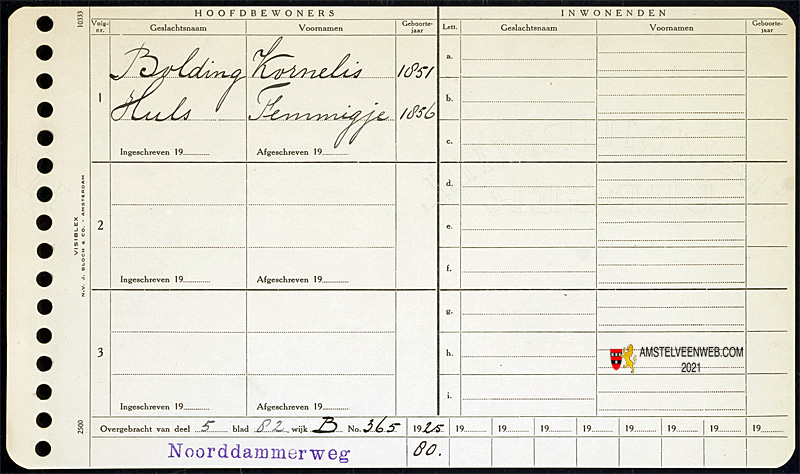 10333
HOOFDBEWONERS INWONENDEN
Volg-nr. Geslachtsnaam Voornamen Geboorte-jaar Lett. Geslachtsnaam Voornamen Geboorte-jaar
1 Bolding Kornelis 1851
Huls Femmigje 1856
Ingeschreven 19 Afgeschreven 19
2
Ingeschreven 19 Afgeschreven 19
3
Ingeschreven 19 Afgeschreven 19
a.
b.
c.
d.
e.
f.
g.
h.
i.
VISIBLEX
N.V. J. BLOCH & CO. - AMSTERDAM
2500
AMSTELVEENWEB.COM
2021
Overgebracht van deel 5 blad 82 wijk B No. 365 1925 19 19 19 19 19 19 19 19
Noorddammerweg 80.